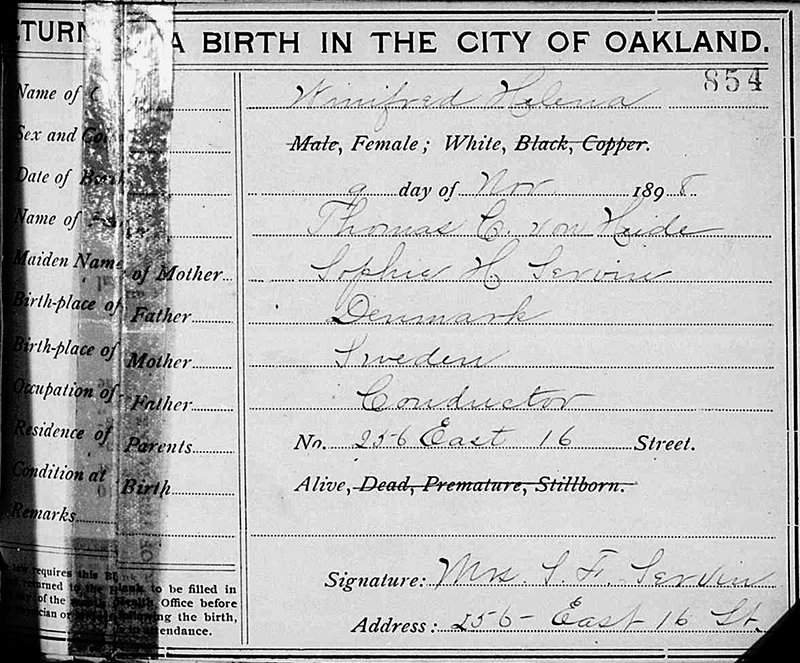 ETURN A BIRTH IN THE CITY OF OAKLAND.
854
Name of Winifred Helena
Sex and Male, Female; White, Black, Copper.
Date of 9 day of Nov 1898.
Name of Thomas C. von Heide
Maiden Name of Mother Sophie H
Birth-place of Father Denmark
Birth-place of Mother Sweden
Occupation of Father Conductor
Residence of Parents No. 256 East 16 Street.
Condition at Birth Alive, Dead, Premature, Stillborn.
Remarks
requires this
returned to the to be filled in
of the Health Office before
the birth,
attendance.
Signature: Mrs S. F.
Address: 256- East 16 St.